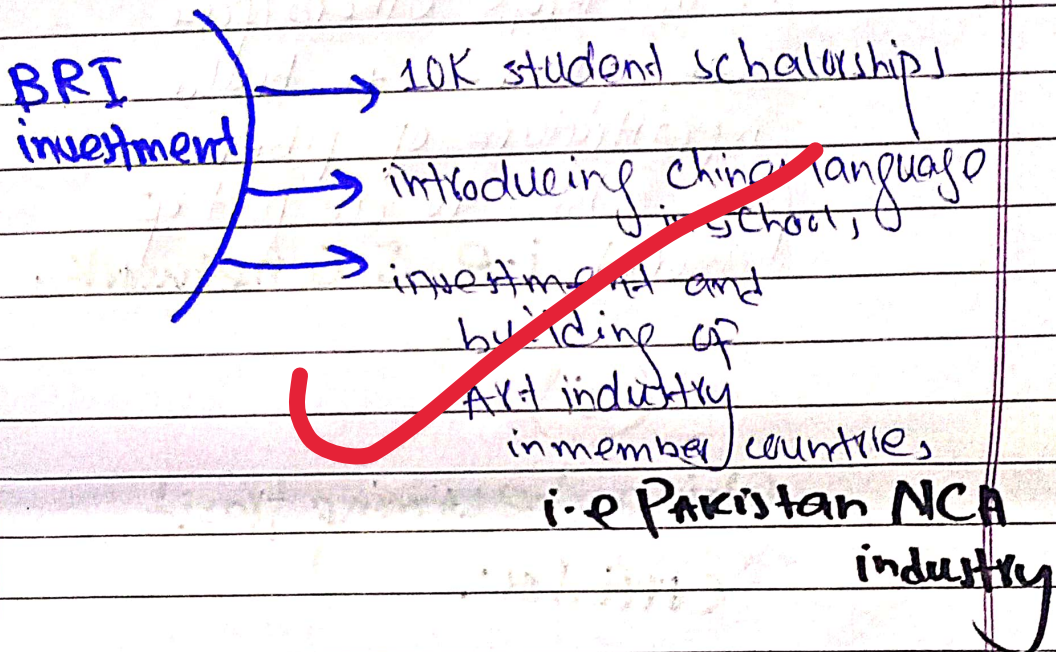 BRI
investment
10K studend schalorships
introduceing china language
in school,
investment and
building of
Art industry
in member countries
i.e PAKistan NCA
industry